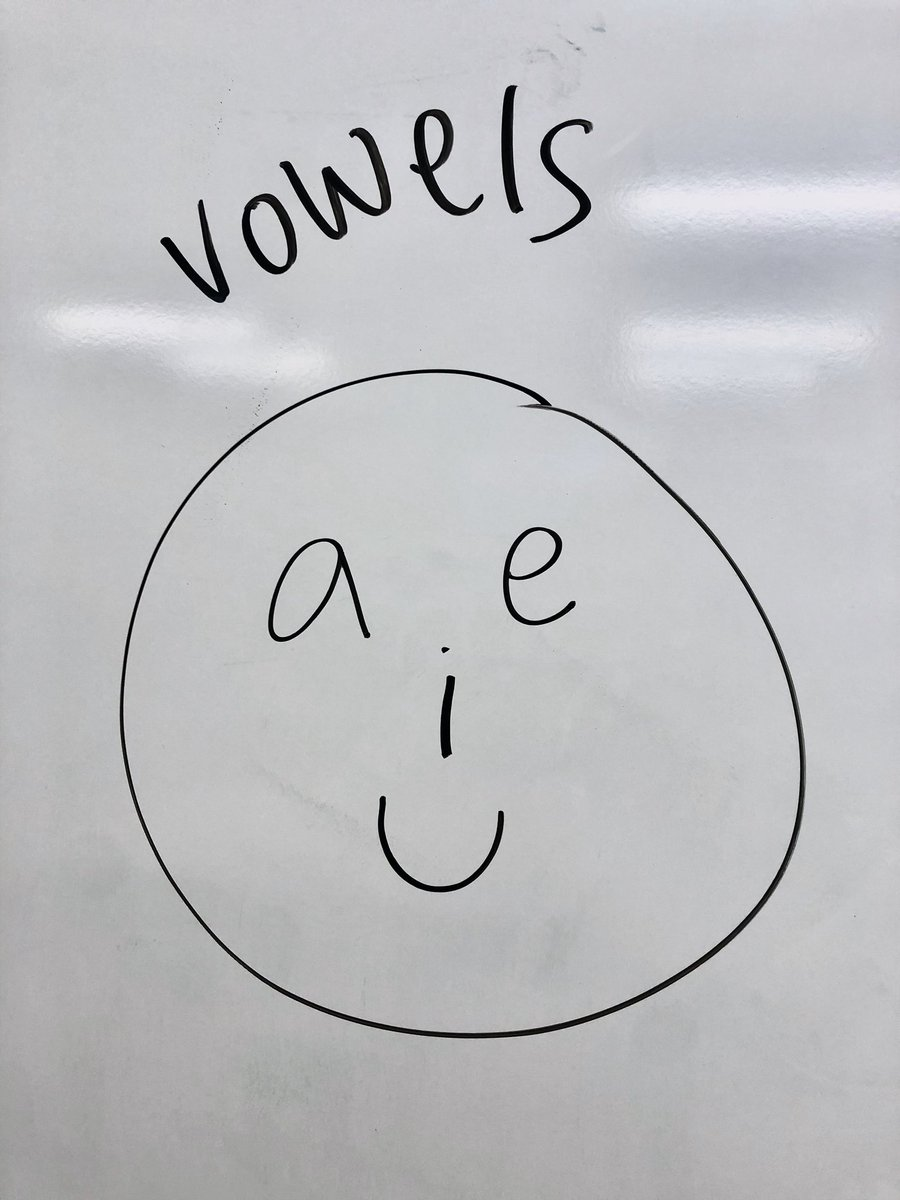 vowels
a e
i
u